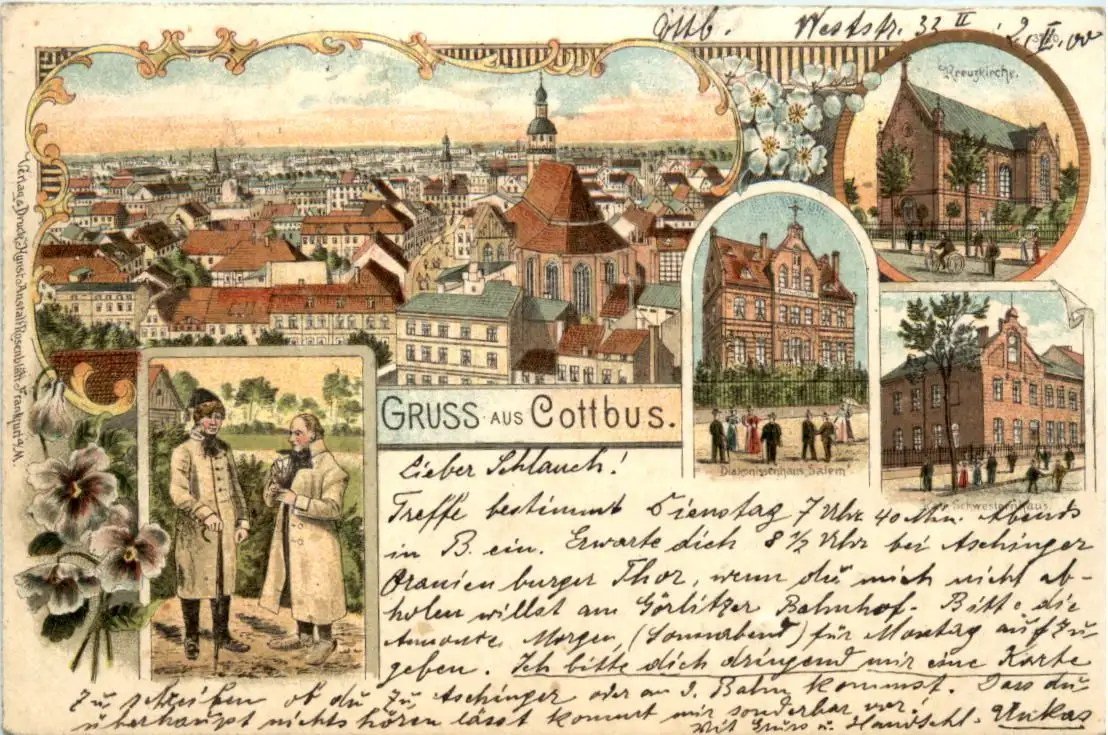 Cttb. Weststr. 33 II 2. II. 00
Kreuzkirche.
Verlag u. Druck Kunst-Anstalt Rosenblatt, Frankfurt a/M.
GRUSS AUS Cottbus.
Diakonissenhaus „Salem"
Schwesternhaus.
Lieber Schlauch!
Treffe bestimmt Dienstag 7 Uhr 40 Min. Abends
in B. ein. Erwarte dich 8 1/2 Uhr bei Aschinger
Oranienburger Thor, wenn du mich nicht ab-
holen willst am Görlitzer Bahnhof. Bitte die
Morgen (Sonnabend) für Montag aufzu-
geben. Ich bitte dich dringend mir eine Karte
zu schreiben ob du zu Aschinger oder an d. Bahn kommst. Dass du
überhaupt nichts hören lässt kommt mir sonderbar vor!
Mit Gruss u. Handschl.